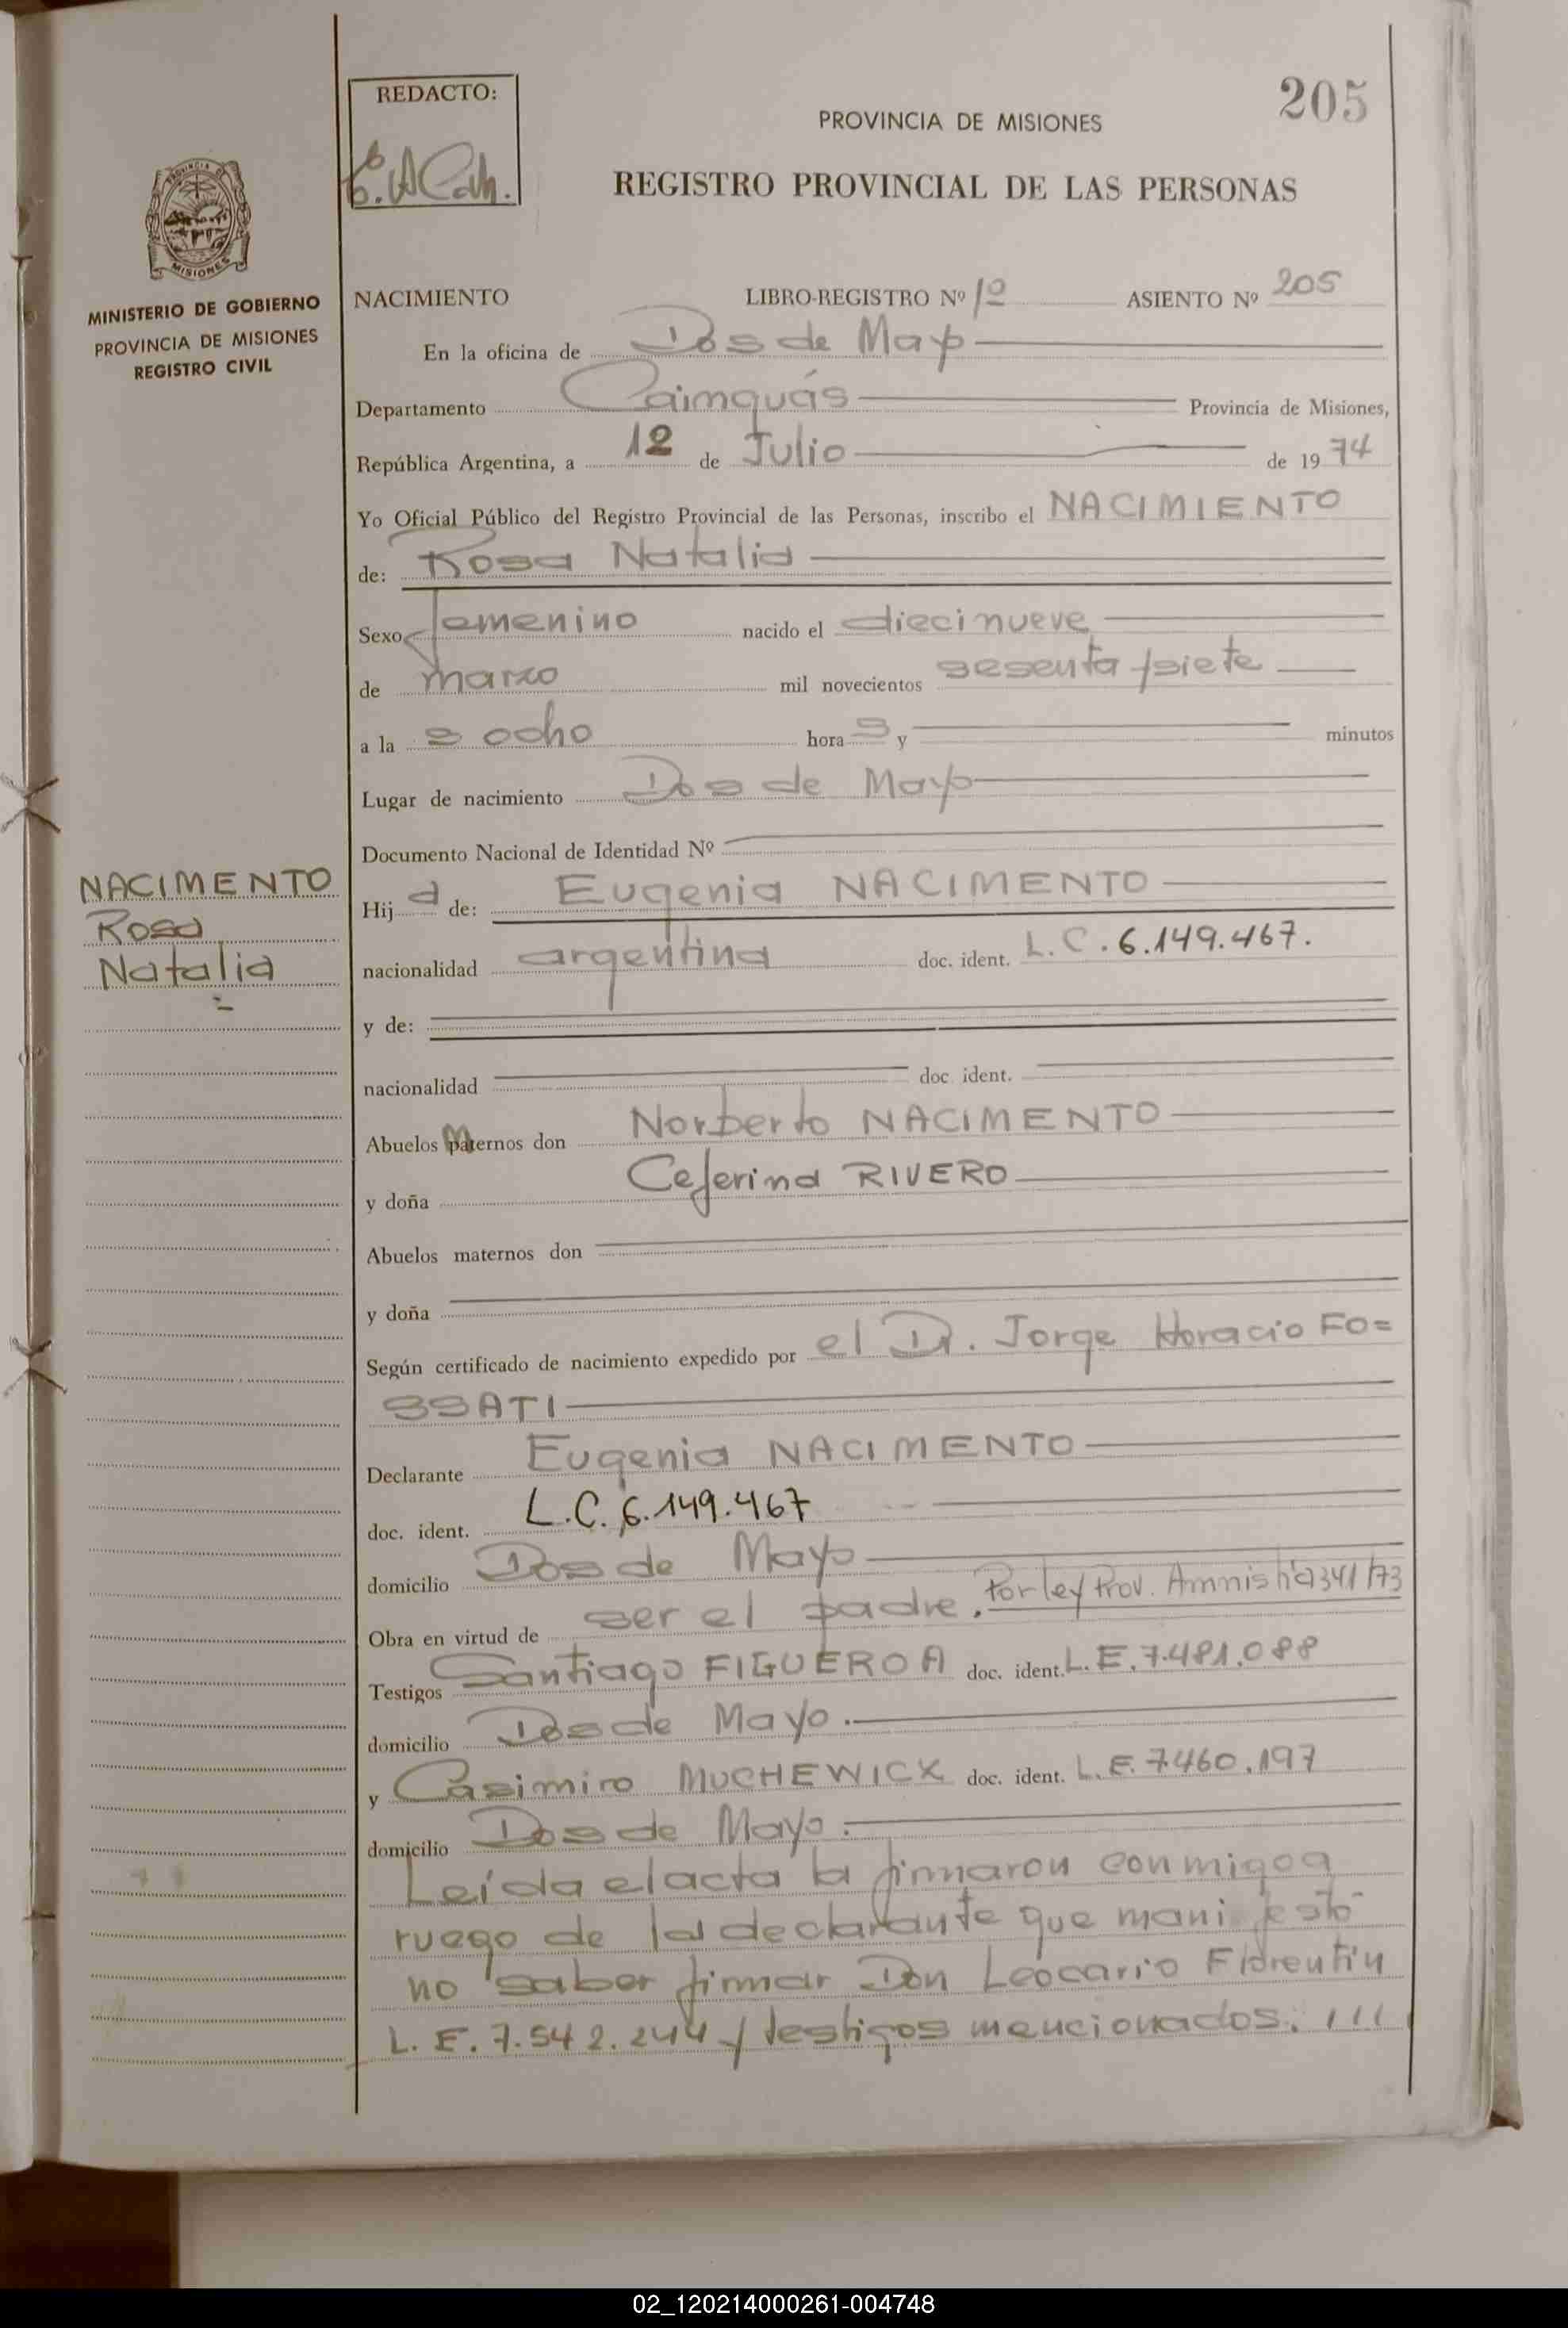 REDACTO:
205
PROVINCIA DE MISIONES
REGISTRO PROVINCIAL DE LAS PERSONAS
MISIONES
MINISTERIO DE GOBIERNO
PROVINCIA DE MISIONES
REGISTRO CIVIL
NACIMIENTO LIBRO-REGISTRO Nº 12 ASIENTO Nº 205
En la oficina de Dos de Mayo
Departamento Caimguás Provincia de Misiones,
República Argentina, a 12 de Julio de 1974
Yo Oficial Público del Registro Provincial de las Personas, inscribo el NACIMIENTO
de: Rosa Natalia
Sexo femenino nacido el diecinueve
de marzo mil novecientos sesenta y siete
a la s ocho hora s y minutos
Lugar de nacimiento Dos de Mayo
Documento Nacional de Identidad Nº
NACIMENTO
Rosa
Natalia
Hij a de: Eugenia NACIMENTO
nacionalidad argentina doc. ident. L.C. 6.149.467.
y de:
nacionalidad doc. ident.
Abuelos maternos don Norberto NACIMENTO
y doña Ceferina RIVERO
Abuelos maternos don
y doña
Según certificado de nacimiento expedido por el Dr. Jorge Horacio FO=
SSATI
Declarante Eugenia NACIMENTO
doc. ident. L.C. 6.149.467
domicilio Dos de Mayo
Obra en virtud de ser el padre. Por ley Prov. Amnistía 341/73
Testigos Santiago FIGUEROA doc. ident. L.E. 7.481.088
domicilio Dos de Mayo.
y Casimiro MUCHEWICK doc. ident. L.E. 7.460.197
domicilio Dos de Mayo.
Leída el acta la firmaron conmigo a
ruego de la declarante que manifestó
no saber firmar Don Leocario Florentín
L.E. 7.542.244 y testigos mencionados. ///
02_120214000261-004748